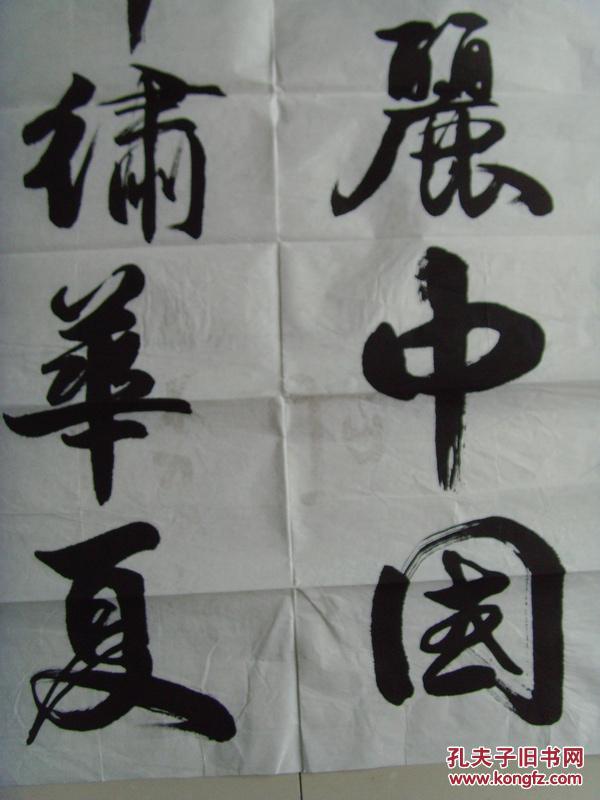 麗中国
繡華夏
孔夫子旧书网
www.kongfz.com